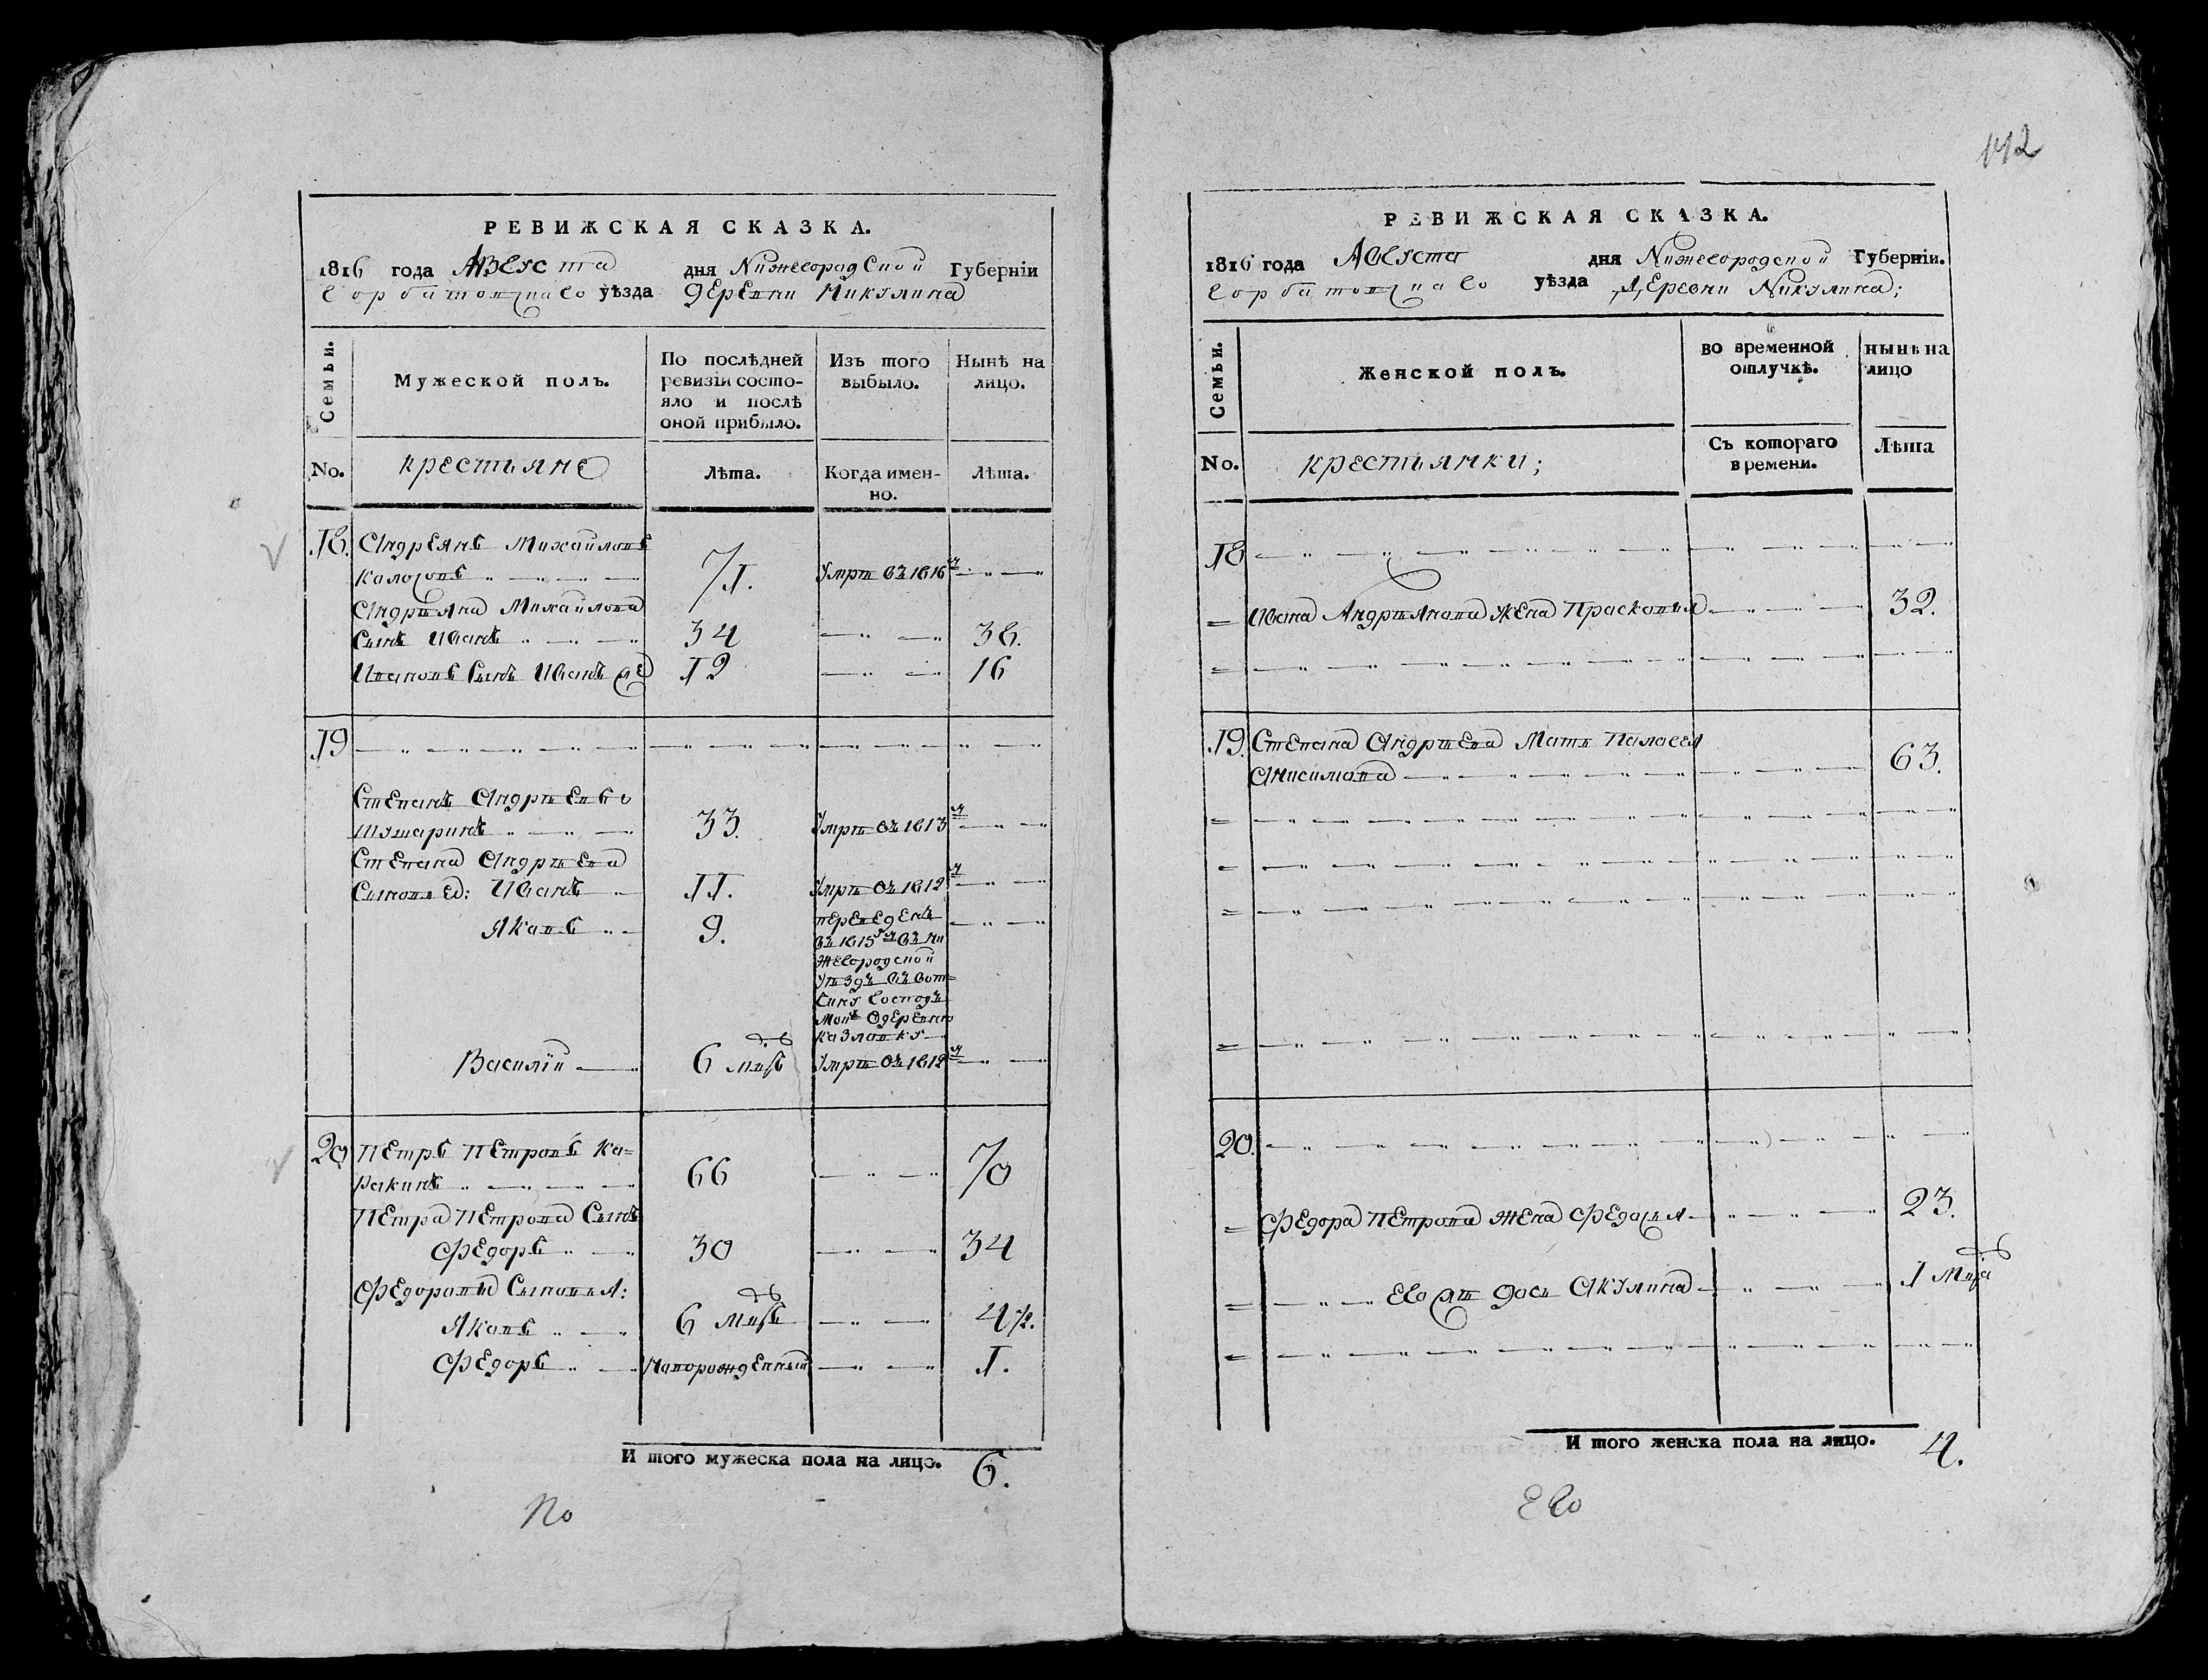 РЕВИЖСКАЯ СКАЗКА.
1816 года Августа дня Нижегородской Губерніи
Горбатовскаго уѣзда деревни Никулина
Семьи.
Мужеской полъ.
По послѣдней ревизіи состо-
яло и послѣ
оной прибыло.
Изъ того
выбыло.
Нынѣ на
лицо.
No.
крестьяне
Лѣта.
Когда имен-
но.
Лѣта.
18. Андреянъ Михайловъ
71. Умре въ 1816
Андреяна Михайлова
Сынъ Иванъ 34 38.
Ивановъ Сынъ Иванъ 12 16
19
Степанъ Андреевъ
33. Умре въ 1813
Степана Андреева
Сыновья: Иванъ 11. Умре въ 1812
Яковъ 9. переведенъ
въ 1815 въ Ни
жегородской
уездъ въ вот=
чину Господъ
Моихъ деревню
Казловку
Василій 6 Умре въ 1812
20 Петръ Петровъ Ка=
ракинъ 66 70
Петра Петрова Сынъ
Федоръ 30 34
Федоровы Сыновья:
Яковъ 6 4 1/2.
Федоръ Новорожденный 1.
И того мужеска пола на лицо. 6.
По
142
РЕВИЖСКАЯ СКАЗКА.
1816 года Августа дня Нижегородской Губерніи.
Горбатовскаго уѣзда Деревни Никулина;
Семьи.
Женской полъ.
во временной
отлучкѣ.
нынѣ на
лицо
No.
крестьянки;
Съ котораго
времени.
Лѣта
18
Ивана Андреянова жена Прасковья 32.
19. Степана Андреева Мать Палагея
Анисимова 63.
20.
Федора Петрова жена Федосья 23.
Ево дочь Акулина 1
И того женска пола на лицо. 4.
Ево